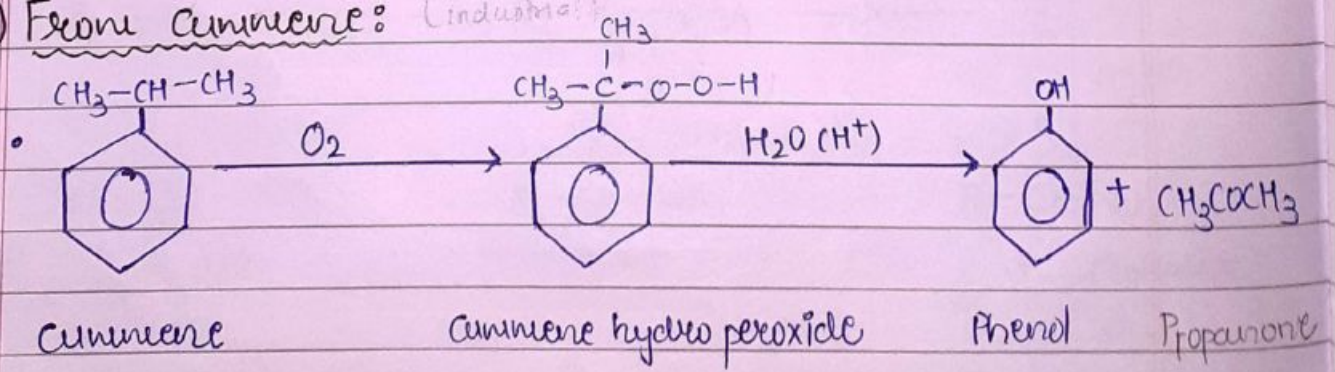 From Cummene: (industrial
CH3
CH3-CH-CH3 CH3-C-O-O-H OH
O2 H2O (H+)
+ CH3COCH3
Cummene Cummene hydro peroxide Phenol Propanone